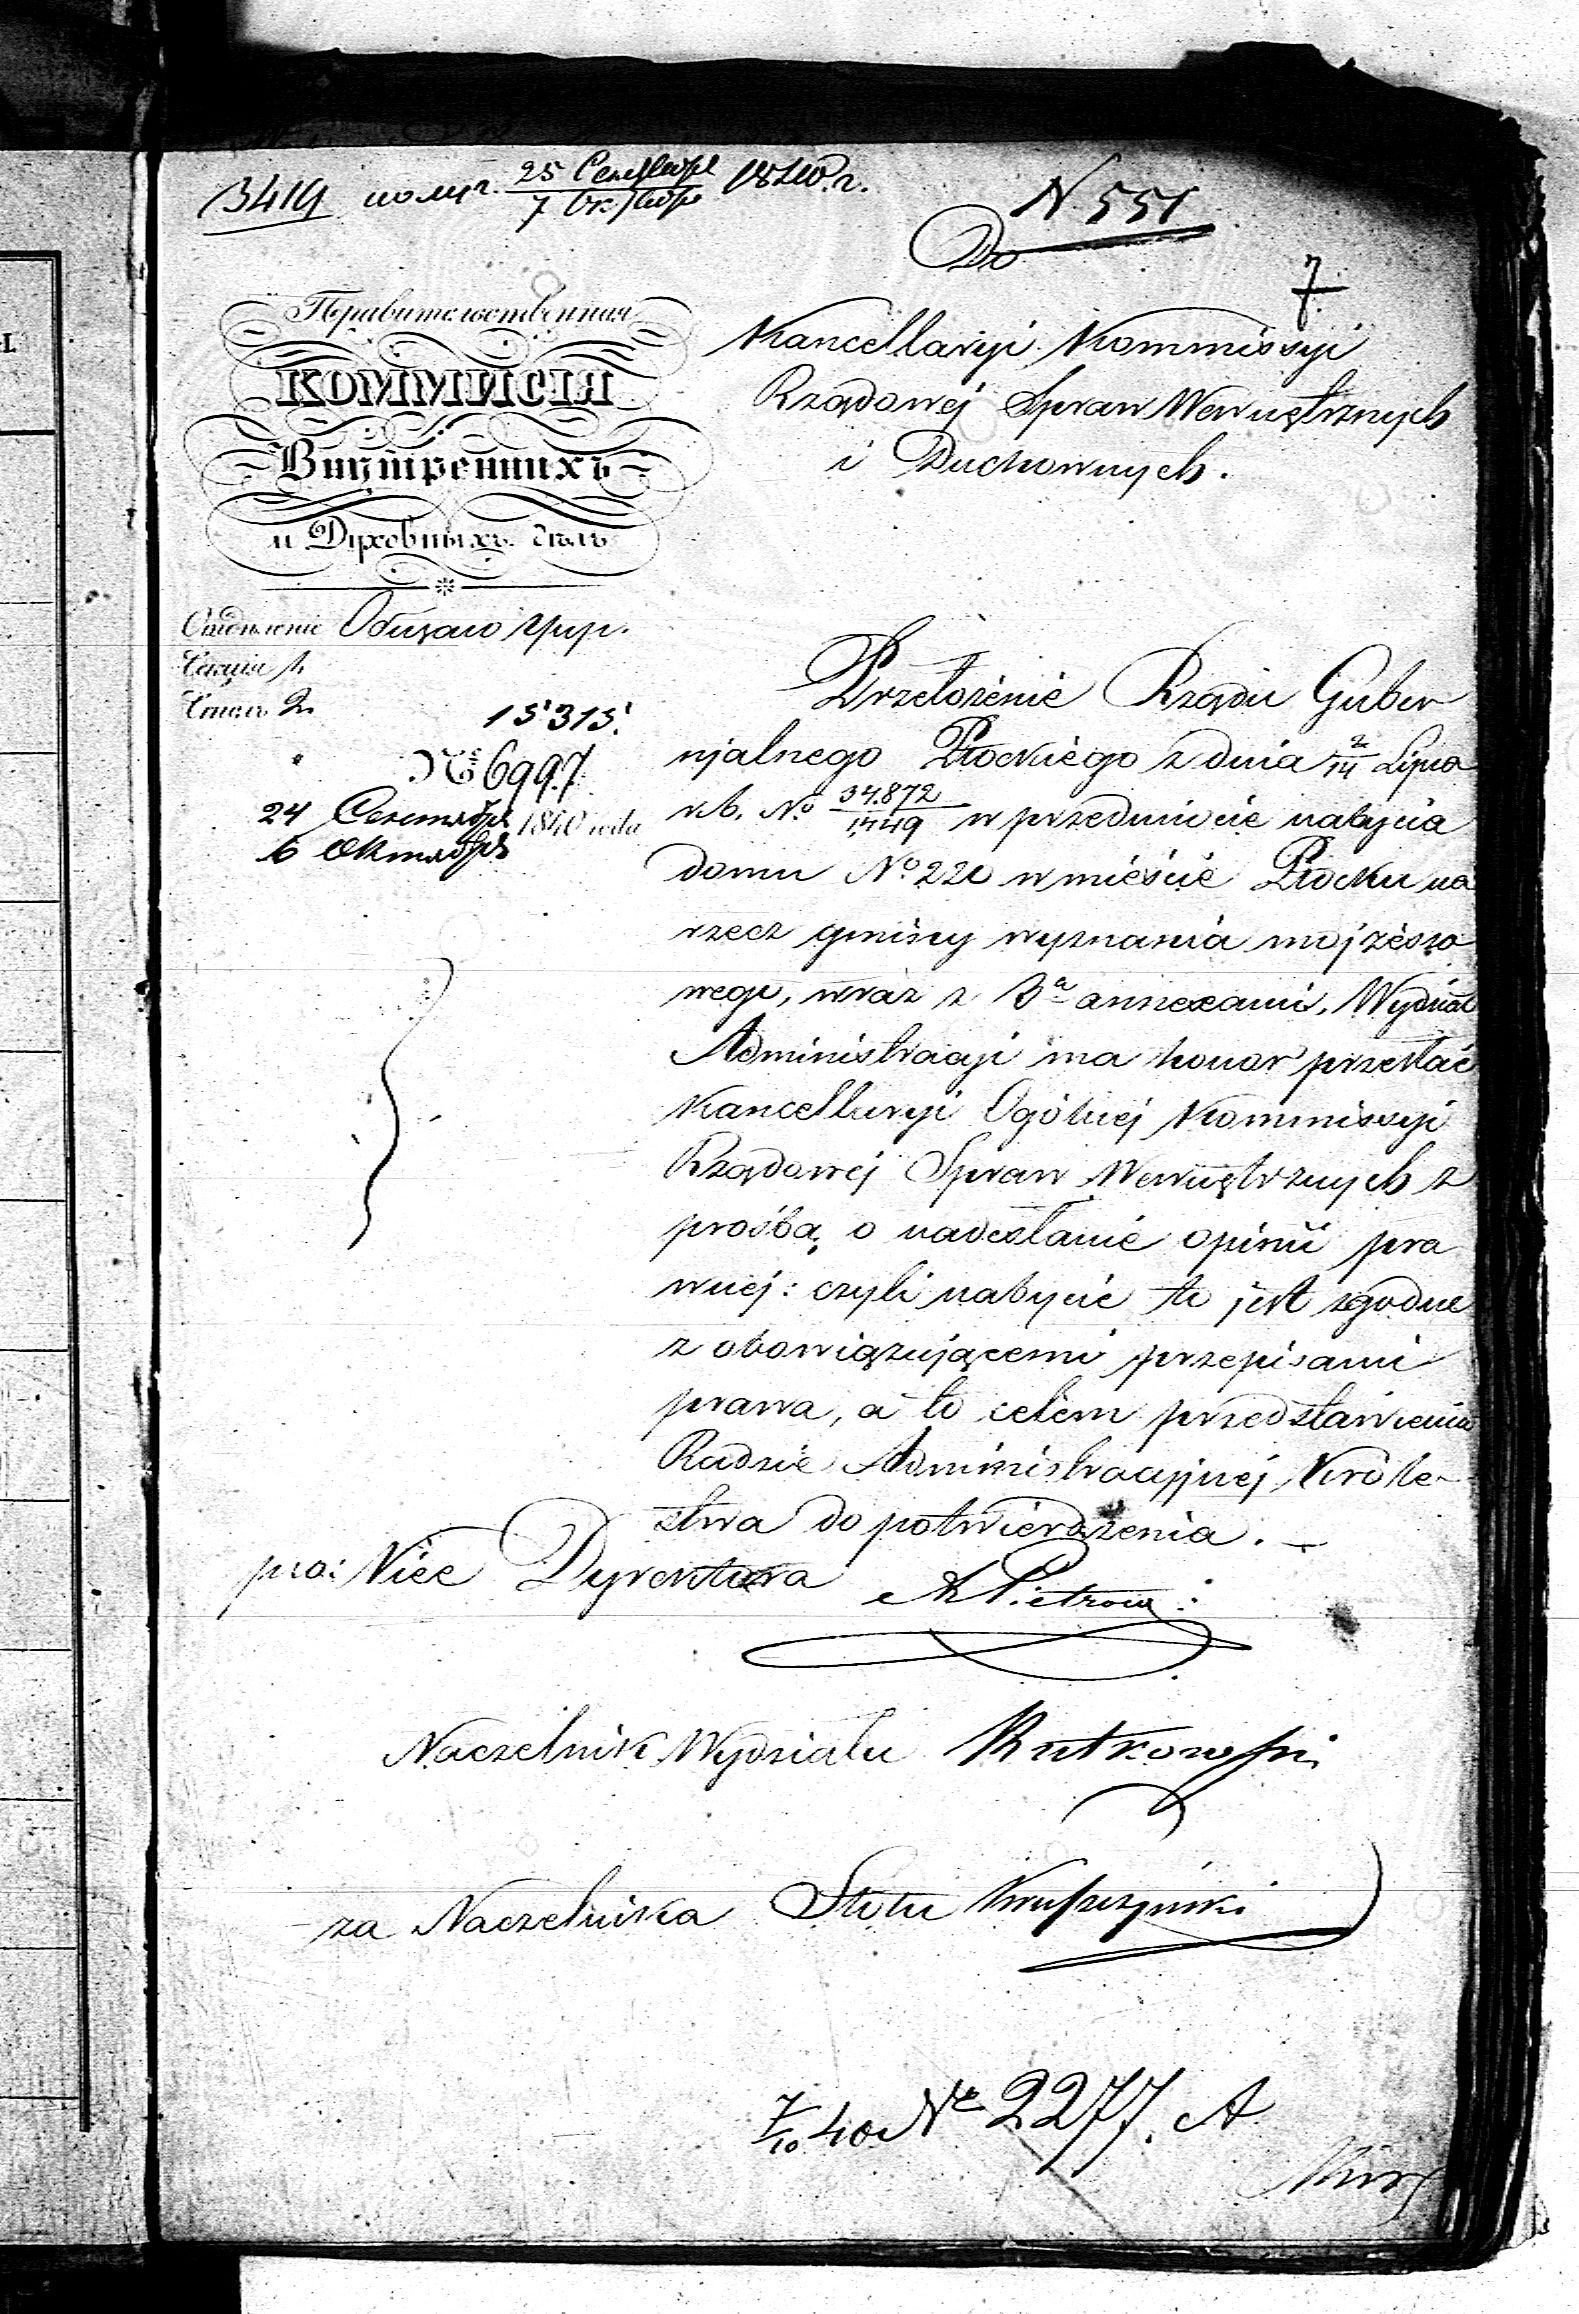 13419 получ. 25 Сентября / 7 Октября 1840. г.
N. 551
Do
7
Kancellaryi Kommissyi
Rządowej Spraw Wewnętrznych
i Duchownych.
Правительственная
КОММИСІЯ
Внутреннихъ
и Духовныхъ дѣлъ
Отдѣленіе Общаго Упр.
Секція 1
Столъ 2.
15315.
№ 6997
24 Сентября / 6 Октября 1840 года
Przełożenie Rządu Guber
njalnego Płockiego z dnia 2/14 Lipca
r.b. No 34.872/1449 w przedmiocie nabycia
domu No 220 w mieście Płocku na
rzecz gminy wyznania mojżeszo
wego, wraz z 3a annexami, Wydział
Administracyi ma honor przesłać
Kancellaryi Ogólnej Kommissyi
Rządowej Spraw Wewnętrznych z
prośbą o nadesłanie opinii pra
wnej: czyli nabycie to jest zgodne
z obowiązującemi przepisami
prawa, a to celem przedstawienia
Radzie Administracyjnej Króle-
stwa do potwierdzenia. –
pro: Vice Dyrektora A Pietrow:
Naczelnik Wydziału Rutkowski
za Naczelnika Stołu
7/10 40 No 2277. A